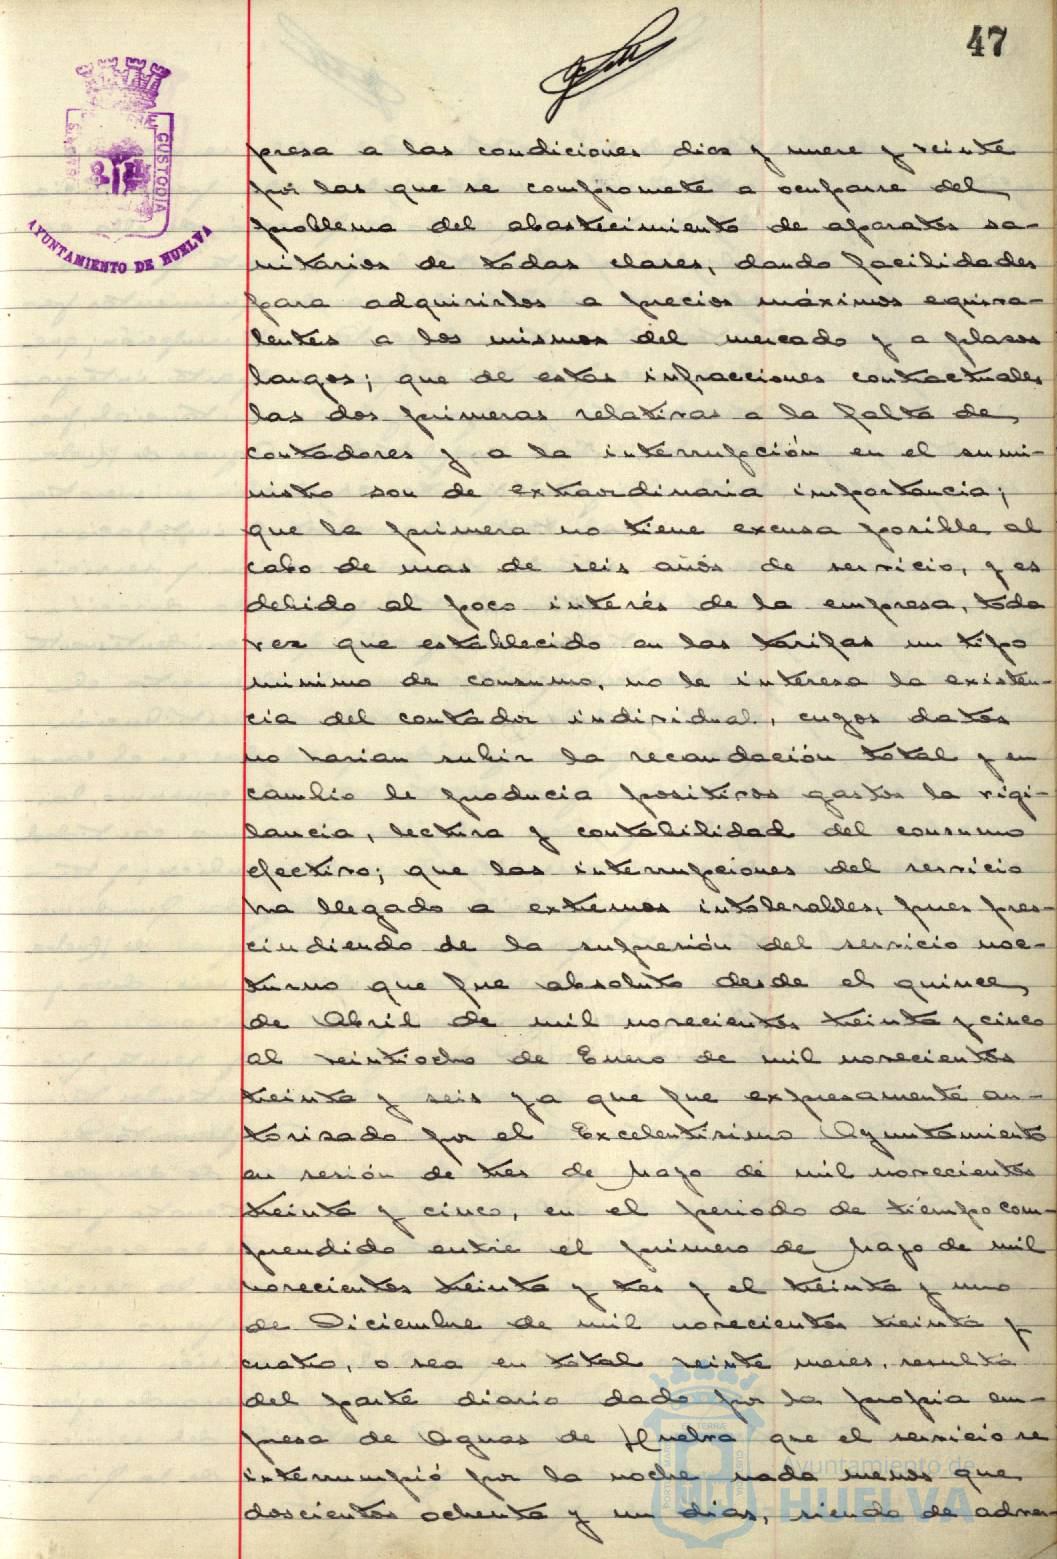 47
CUSTODIA
AYUNTAMIENTO DE HUELVA
presa a las condiciones diez y nueve y veinte
por las que se compromete a ocuparse del
problema del abastecimiento de aparatos sa-
nitarios de todas clases, dando facilidades
para adquirirlos a precios máximos equiva-
lentes a los mismos del mercado y a plazos
largos; que de estas infracciones contractuales
las dos primeras relativas a la falta de
contadores y a la interrupción en el sumi-
nistro son de extraordinaria importancia;
que la primera no tiene excusa posible al
cabo de mas de seis años de servicio, y es
debido al poco interés de la empresa, toda
vez que establecido en las tarifas un tipo
mínimo de consumo, no le interesa la existen-
cia del contador individual, cuyos datos
no harian subir la recaudación total y en
cambio le producia positivos gastos la vigi-
lancia, lectura y contabilidad del consumo
efectivo; que las interrupciones del servicio
ha llegado a extremos intolerables, pues pres-
cindiendo de la supresión del servicio noc-
turno que fue absoluto desde el quince
de Abril de mil novecientos treinta y cinco
al veintiocho de Enero de mil novecientos
treinta y seis ya que fue expresamente au-
torizado por el Excelentísimo Ayuntamiento
en sesión de tres de Mayo de mil novecientos
treinta y cinco, en el periodo de tiempo com-
prendido entre el primero de Mayo de mil
novecientos treinta y tres y el treinta y uno
de Diciembre de mil novecientos treinta y
cuatro, o sea en total veinte meses, resulta
del parte diario dado por la propia em-
presa de Aguas de Huelva que el servicio se
interrumpió por la noche nada menos que
doscientos ochenta y un dias, siendo de adver-
Ayuntamiento de
HUELVA